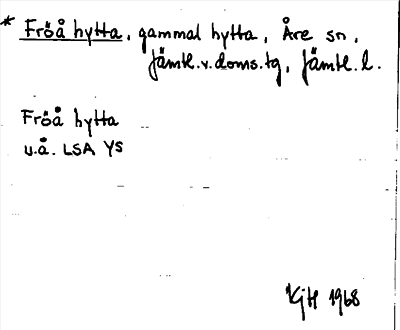 * Fröå hytta, gammal hytta, Åre sn,
Jämtl.v.doms.tg, Jämtl.l.
Fröå hytta
u.å. LSA Y5
KjH 1968